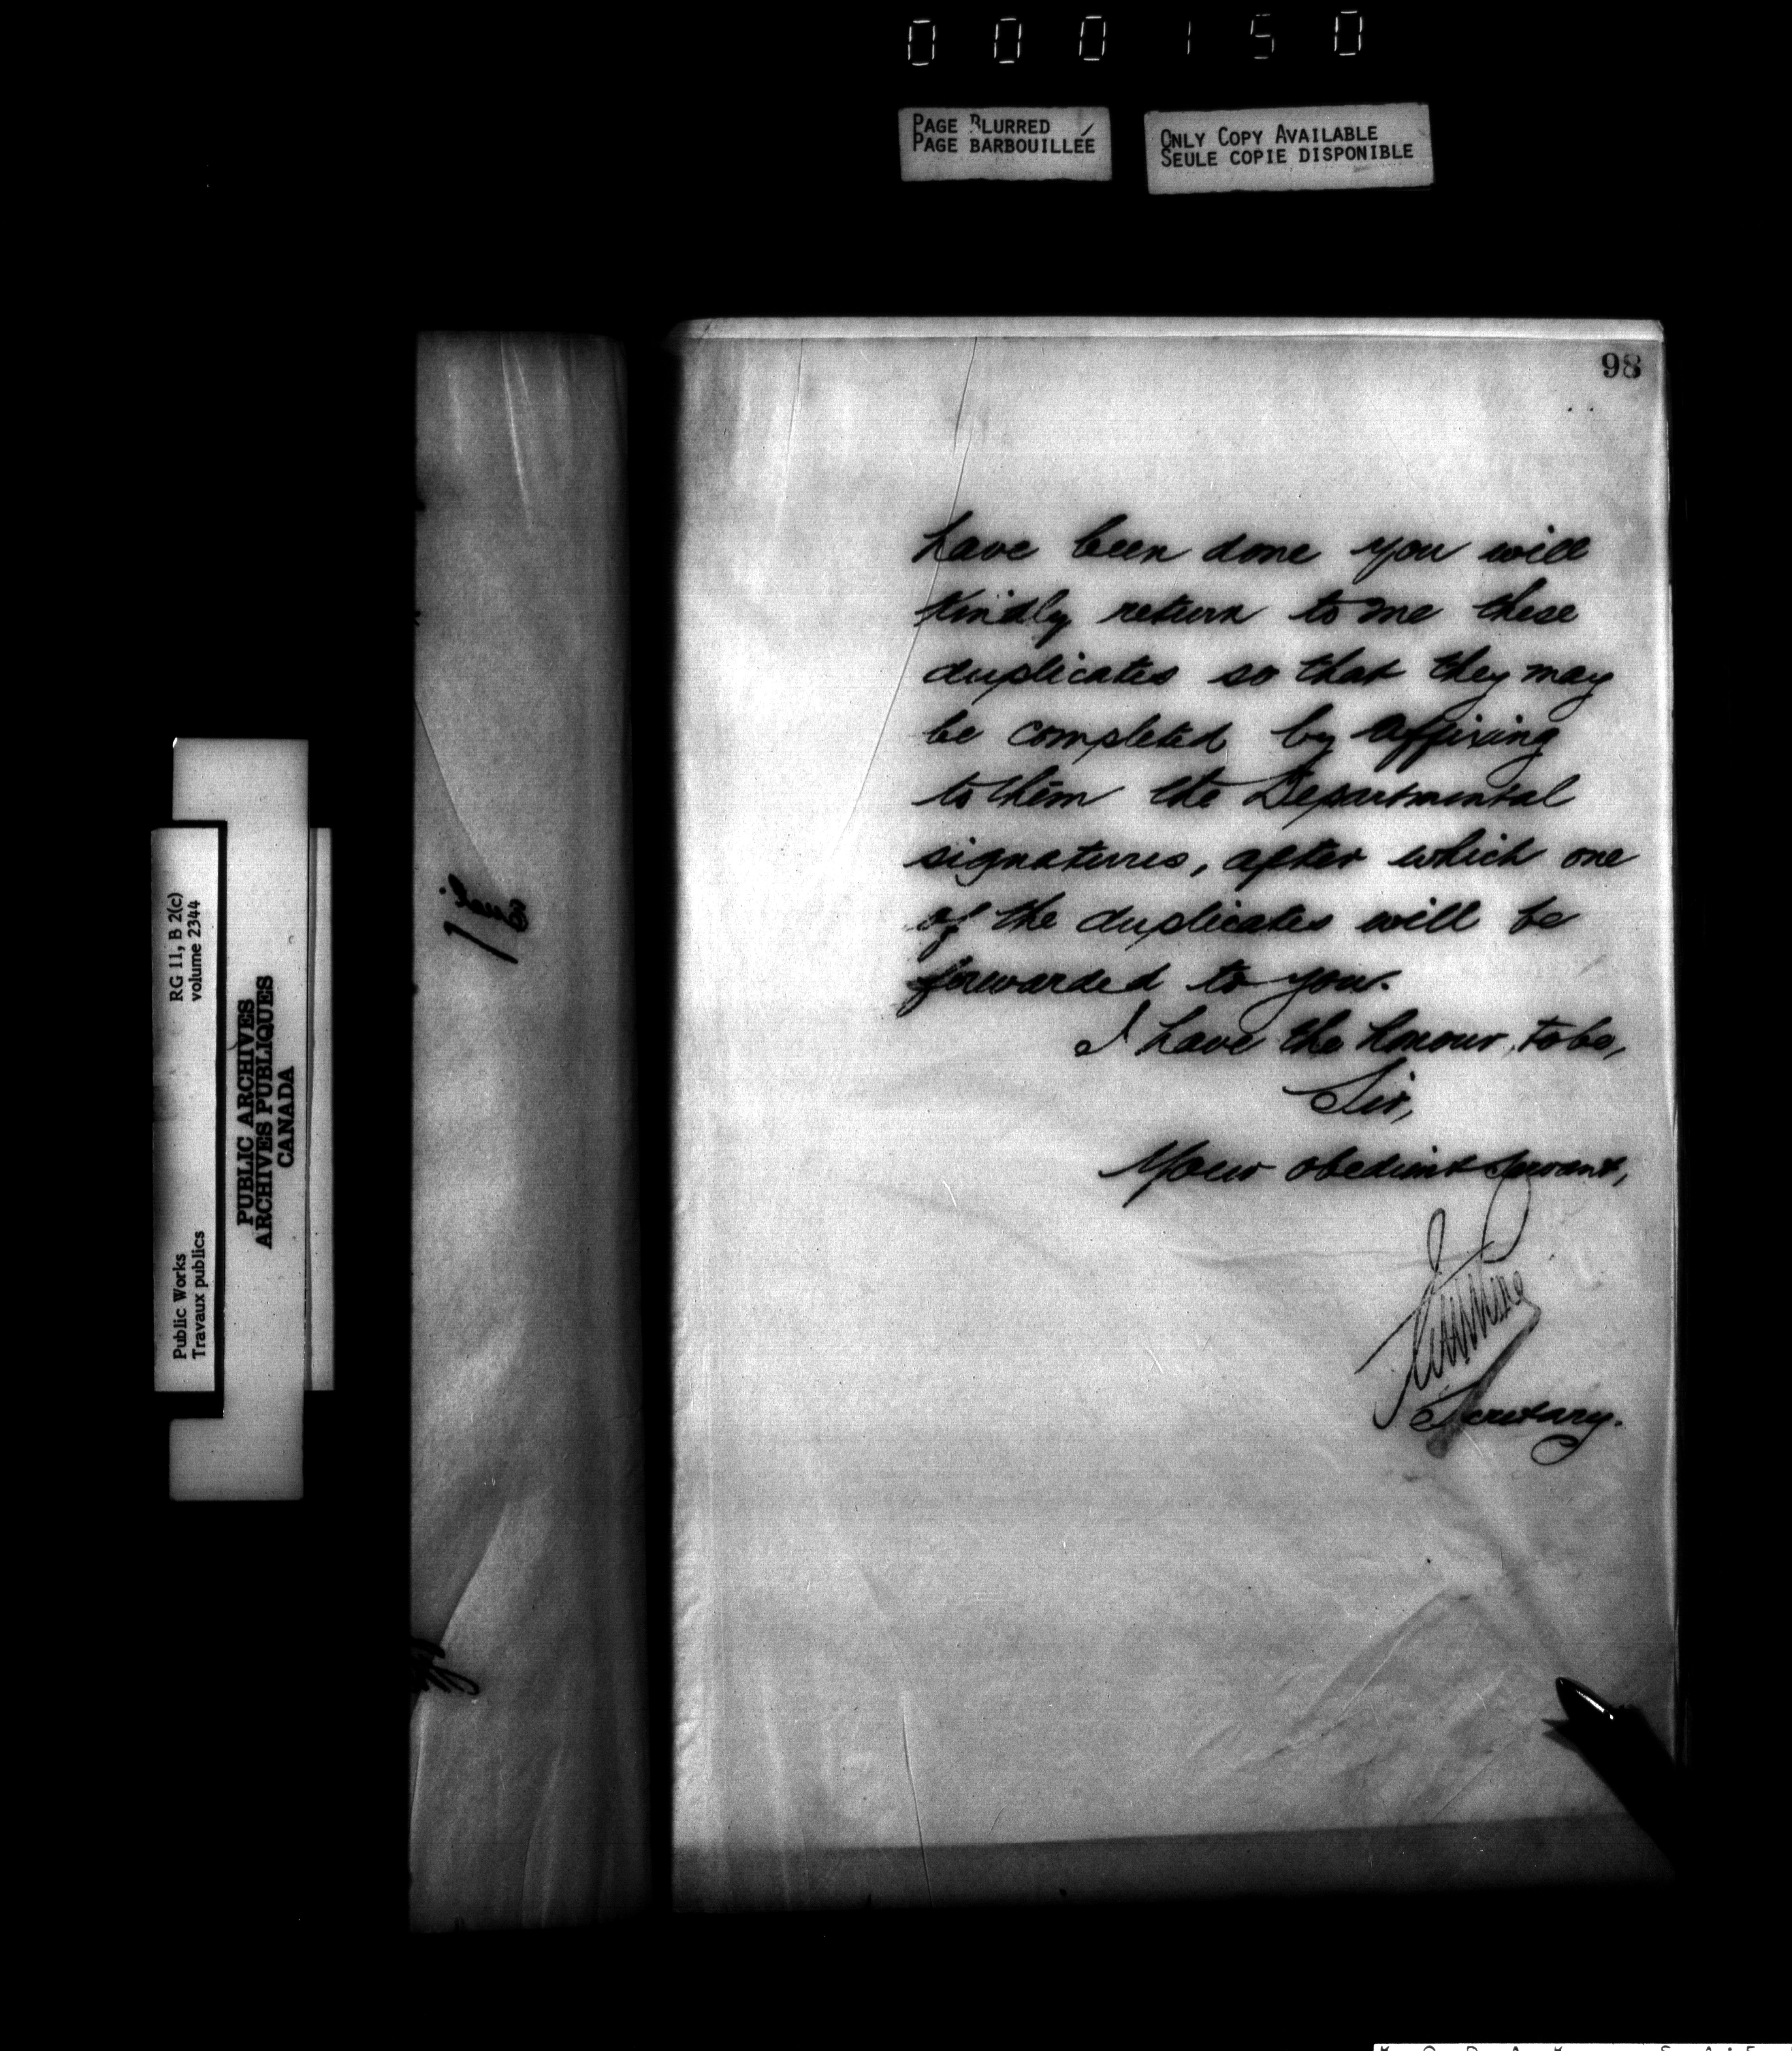 000150
PAGE BLURRED
PAGE BARBOUILLÉE
ONLY COPY AVAILABLE
SEULE COPIE DISPONIBLE
98
have been done you will
kindly return to me these
duplicates so that they may
be completed by affixing
to them the Departmental
signatures, after which one
of the duplicates will be
forwarded to you.
I have the honour to be,
Sir,
Your obedient servant,
Secretary.
RG 11, B 2(c)
volume 2344
Public Works
Travaux publics
PUBLIC ARCHIVES
ARCHIVES PUBLIQUES
CANADA